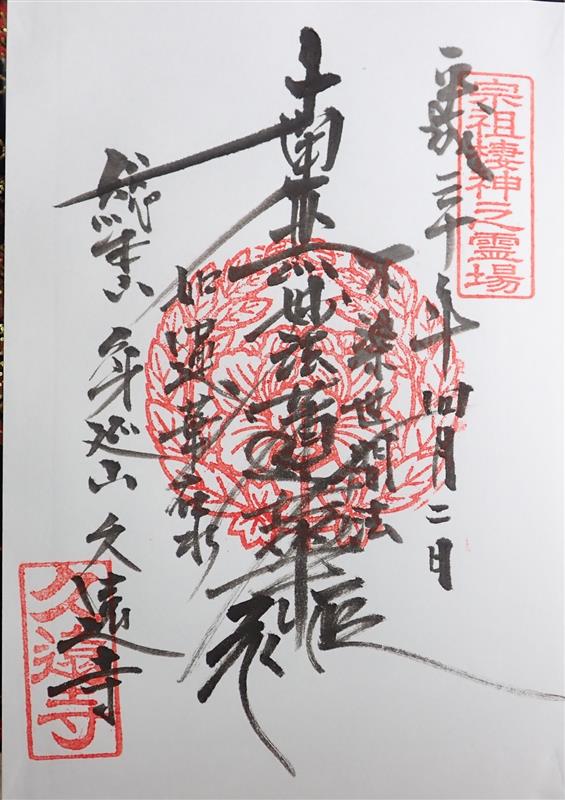 宗祖棲神之霊場
平成三十年四月二日
不染世間法
南無妙法蓮華経
如蓮華在水
総本山 身延山 久遠寺
久遠寺